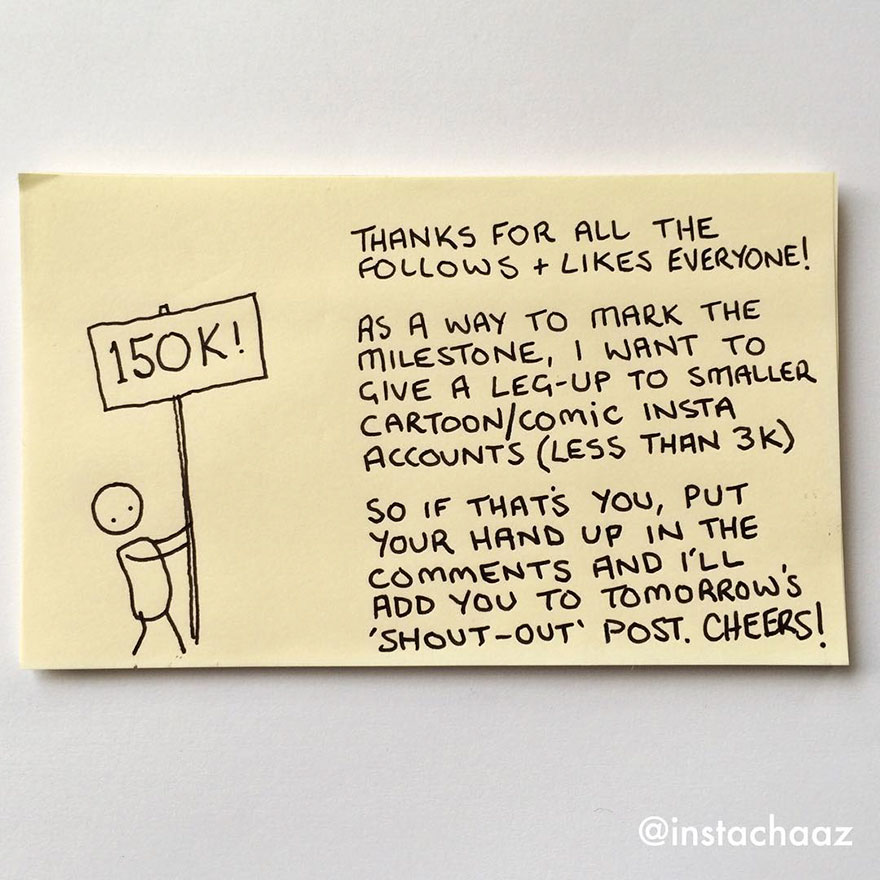 150K!
THANKS FOR ALL THE
FOLLOWS + LIKES EVERYONE!
AS A WAY TO MARK THE
MILESTONE, I WANT TO
GIVE A LEG-UP TO SMALLER
CARTOON/COMIC INSTA
ACCOUNTS (LESS THAN 3K)
SO IF THAT'S YOU, PUT
YOUR HAND UP IN THE
COMMENTS AND I'LL
ADD YOU TO TOMORROW'S
'SHOUT-OUT' POST. CHEERS!
@instachaaz